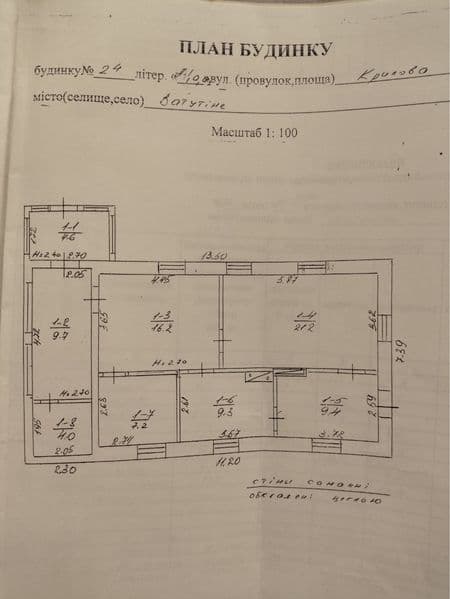 ПЛАН БУДИНКУ
будинку№ 24 літер. вул. (провулок,площа) Крилова
місто(селище,село) Ватутіне
Масштаб 1: 100
1-1
4.6
1.72
H=2.40 2.70
13.50
2.05
4.45
5.87
1-2
9.7
4.72
3.65
1-3
16.2
1-4
21.2
3.62
7.39
H=2.70
H=2.70
1-8
4.0
1.95
2.05
2.30
2.63
1-7
7.2
2.74
2.61
1-6
9.3
3.67
1-5
9.4
2.59
3.72
11.20
стіни саманні
обкладені цеглою